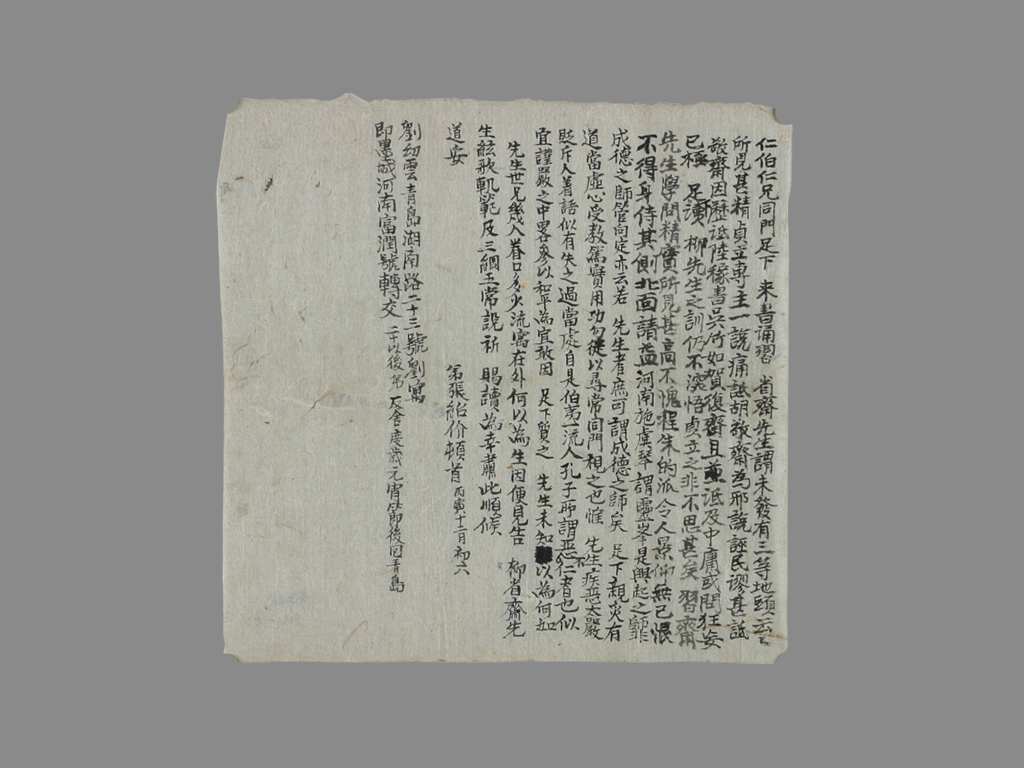 仁伯仁兄同門足下 來書誦習 省齋先生謂未發有三等地頭云云
所見甚精貞立專主一說痛詆胡敬齋為邪說誣民謬甚詆
敬齋因歷詆陸稼書吳何如賀復齋且兼詆及中庸或問狂妄
已極 足下述柳先生之訓仍不深悟貞立之非不思甚矣 習齋
先生學問精實所見甚高不愧程朱的派令人景仰無已恨
不得身侍其側北面請益河南施虞琴謂靈峯是興起之師非
成德之師管向定亦云若 先生者庶可謂成德之師矣 足下親炙有
道當虛心受教為實用功勿從以尋常同門視之也惟 先生疾惡太嚴
貶斥人着語似有失之過當處自是伯夷一流人孔子所謂惡不仁者也似
宜謹嚴之中畧參以和平為宜敢因 足下質之 先生未知以為何如
先生世兄幾人眷口多少流寓在外何以為生因便見告 柳省齋先
生絃歌軌範及三綱五常說祈 賜讀為幸肅此順候
道安
弟張紹价頓首 丙寅十二月初六
劉幼雲青島湖南路二十三號劉寓
即墨城河南富潤號轉交 二十以後弟反舍度歲元宵節後回青島